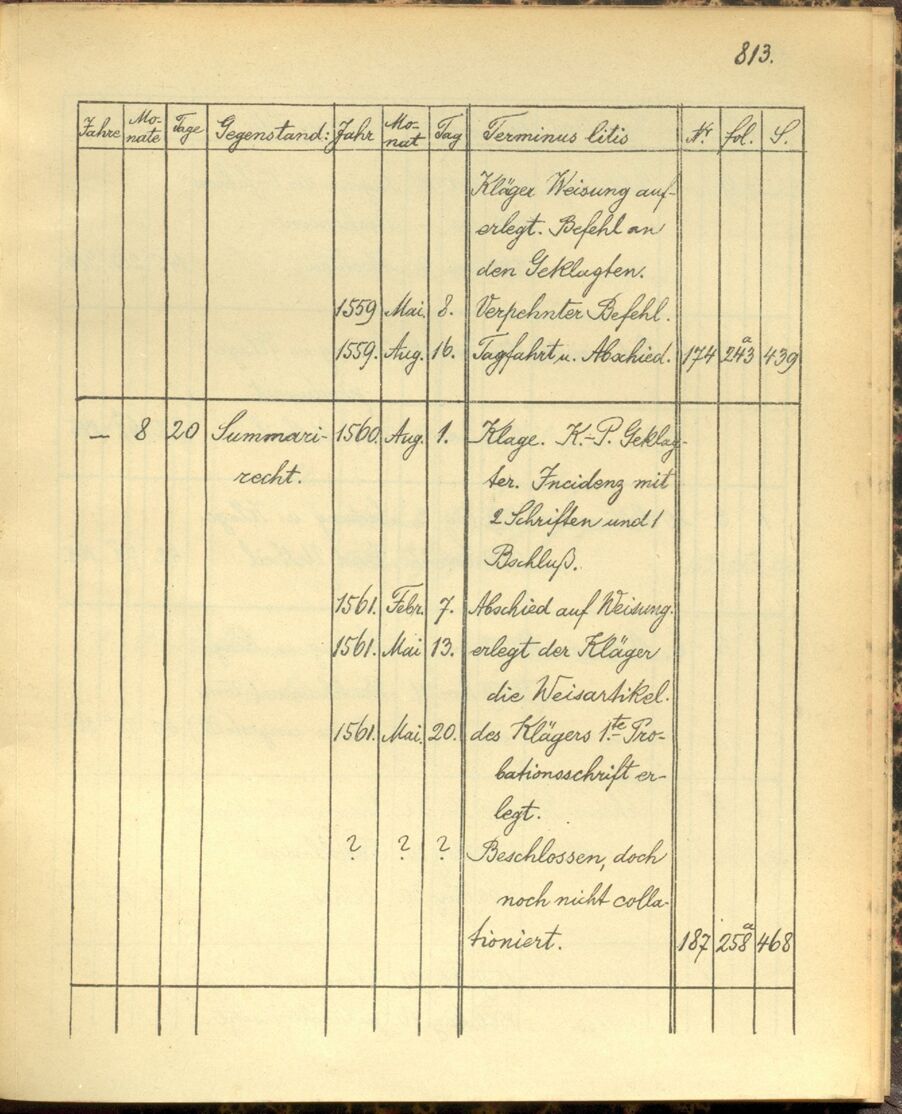 813.
Jahre Mo- nate Tage Gegenstand: Jahr Mo- nat Tag Terminus litis Nr. fol. S.
Kläger Weisung auf-
erlegt. Befehl an
den Geklagten.
1559 Mai. 8. Verpehnter Befehl.
1559. Aug. 16. Tagfahrt u. Abschied. 174 243a 439
— 8 20 Summari- 1560. Aug. 1. Klage. K.-P. Geklag-
recht. ter. Incidenz mit
2 Schriften und 1
Bschluß.
1561. Febr. 7. Abschied auf Weisung.
1561. Mai 13. erlegt der Kläger
die Weisartikel.
1561. Mai. 20. des Klägers 1.te Pro-
bationsschrift er-
legt.
? ? ? Beschlossen, doch
noch nicht colla-
tioniert. 187 258a 468